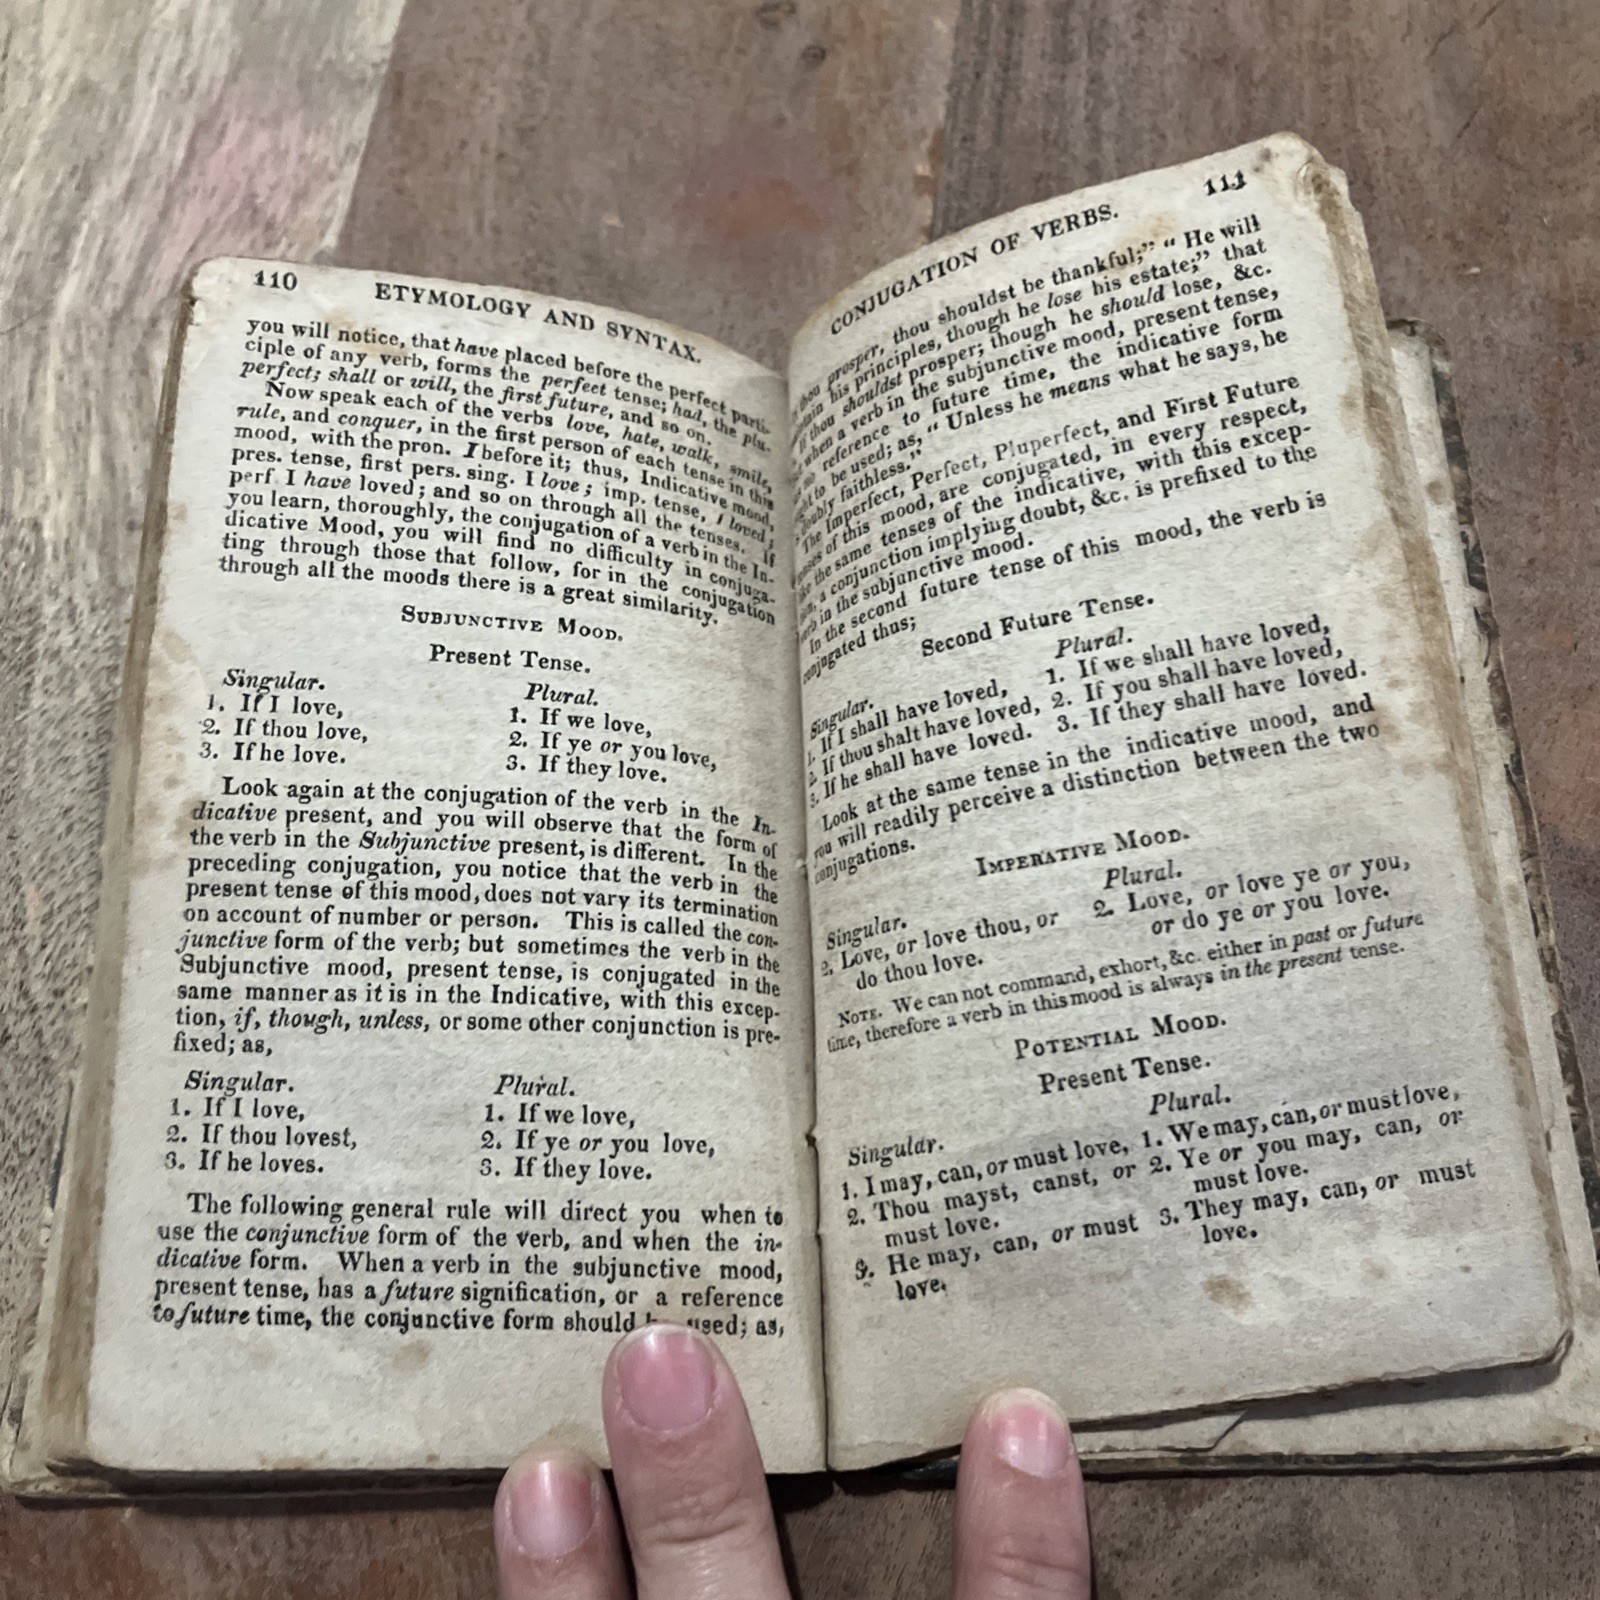 110
ETYMOLOGY AND SYNTAX.
you will notice, that have placed before the perfect parti-
ciple of any verb, forms the perfect tense; had, the plu-
perfect; shall or will, the first future, and so on.
Now speak each of the verbs love, hate, walk, smile,
rule, and conquer, in the first person of each tense in this
mood, with the pron. I before it; thus, Indicative mood,
pres. tense, first pers. sing. I love; imp. tense, I loved;
perf. I have loved; and so on through all the tenses. If
you learn, thoroughly, the conjugation of a verb in the In-
dicative Mood, you will find no difficulty in conjuga-
ting through those that follow, for in the conjugation
through all the moods there is a great similarity.
SUBJUNCTIVE MOOD.
Present Tense.
Singular. Plural.
1. If I love, 1. If we love,
2. If thou love, 2. If ye or you love,
3. If he love. 3. If they love.
Look again at the conjugation of the verb in the In-
dicative present, and you will observe that the form of
the verb in the Subjunctive present, is different. In the
preceding conjugation, you notice that the verb in the
present tense of this mood, does not vary its termination
on account of number or person. This is called the con-
junctive form of the verb; but sometimes the verb in the
Subjunctive mood, present tense, is conjugated in the
same manner as it is in the Indicative, with this excep-
tion, if, though, unless, or some other conjunction is pre-
fixed; as,
Singular. Plural.
1. If I love, 1. If we love,
2. If thou lovest, 2. If ye or you love,
3. If he loves. 3. If they love.
The following general rule will direct you when to
use the conjunctive form of the verb, and when the in-
dicative form. When a verb in the subjunctive mood,
present tense, has a future signification, or a reference
to future time, the conjunctive form should used; as,
CONJUGATION OF VERBS. 111
thou prosper, thou shouldst be thankful;" "He will
his principles, though he lose his estate;" that
If thou shouldst prosper; though he should lose, &c.
when a verb in the subjunctive mood, present tense,
no reference to future time, the indicative form
to be used; as, "Unless he means what he says, he
doubly faithless."
The Imperfect, Perfect, Pluperfect, and First Future
tenses of this mood, are conjugated, in every respect,
like the same tenses of the indicative, with this excep-
tion, a conjunction implying doubt, &c. is prefixed to the
verb in the subjunctive mood.
In the second future tense of this mood, the verb is
conjugated thus;
Second Future Tense.
Singular. Plural.
1. If I shall have loved, 1. If we shall have loved,
2. If thou shalt have loved, 2. If you shall have loved,
3. If he shall have loved. 3. If they shall have loved.
Look at the same tense in the indicative mood, and
you will readily perceive a distinction between the two
conjugations.
IMPERATIVE MOOD.
Singular. Plural.
2. Love, or love thou, or 2. Love, or love ye or you,
do thou love. or do ye or you love.
NOTE. We can not command, exhort, &c. either in past or future
time, therefore a verb in this mood is always in the present tense.
POTENTIAL MOOD.
Present Tense.
Singular. Plural.
1. I may, can, or must love, 1. We may, can, or must love,
2. Thou mayst, canst, or 2. Ye or you may, can, or
must love. must love.
3. He may, can, or must 3. They may, can, or must
love. love.